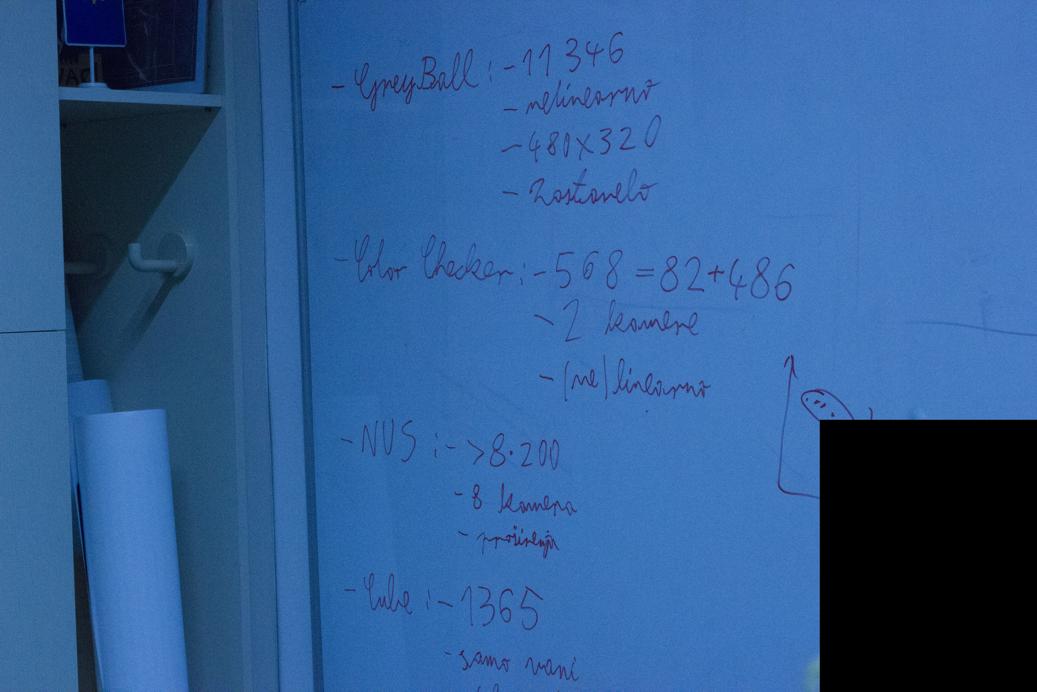 - GreyBall : - 11 346
- nelinearno
- 480x320
- Zastarelo
- Color Checker : - 568 = 82+486
- 2 kamere
- (ne) linearno
- NUS : - >8·200
- 8 kamera
- proširenja
- Cube : - 1365
- samo vani